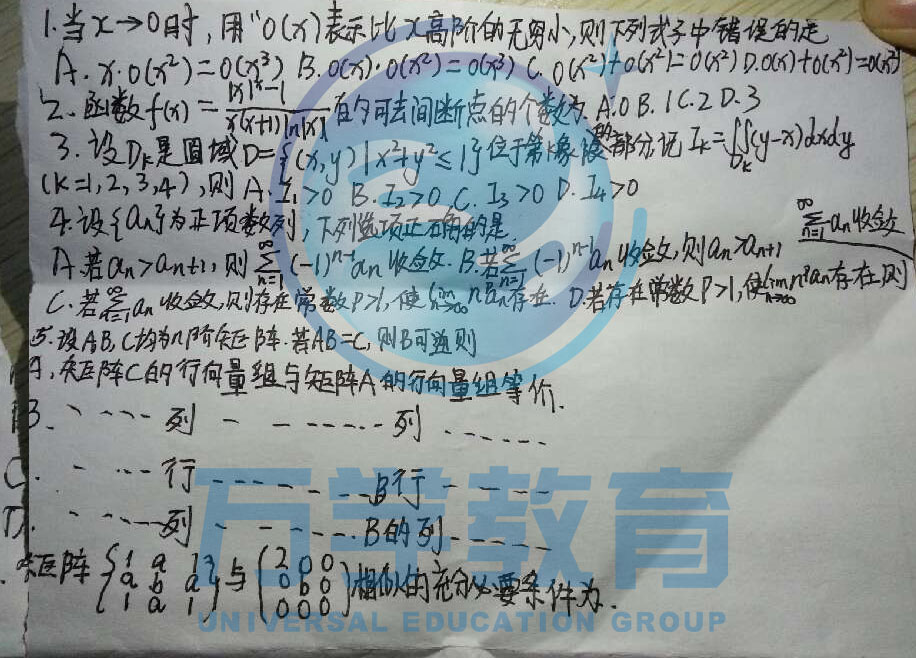 1.当x→0时,用"o(x)表示比x高阶的无穷小,则下列式子中错误的是
A. x·o(x²)=o(x³) B.o(x)·o(x²)=o(x³) C. o(x²)+o(x²)=o(x²) D.o(x)+o(x²)=o(x²)
2.函数f(x)=(|x|^x-1)/(x(x+1)ln|x|)的可去间断点的个数为. A.0 B.1 C.2 D.3
3.设Dk是圆域D={(x,y)|x²+y²≤1}位于第k象限的部分,记Ik=∬_{Dk}(y-x)dxdy
(k=1,2,3,4),则 A.I₁>0 B.I₂>0 C.I₃>0 D.I₄>0
4.设{an}为正项数列,下列选项正确的是.
A.若an>an+1,则∑_{n=1}^{∞}(-1)^{n-1}an收敛. B.若∑_{n=1}^{∞}(-1)^{n-1}an收敛,则an>an+1
C.若∑_{n=1}^{∞}an收敛,则存在常数P>1,使lim_{n→∞}n^P an存在. D.若存在常数P>1,使lim_{n→∞}n^P an存在,则
∑_{n=1}^{∞}an收敛
5.设A,B,C均为n阶矩阵.若AB=C,则B可逆则
A.矩阵C的行向量组与矩阵A的行向量组等价.
B. 列 列
C. 行 B行
D. 列 B的列
矩阵(1 a 1
a b a
1 a 1)与(2 0 0
0 b 0
0 0 0)相似的充分必要条件为.
万学教育
UNIVERSAL EDUCATION GROUP